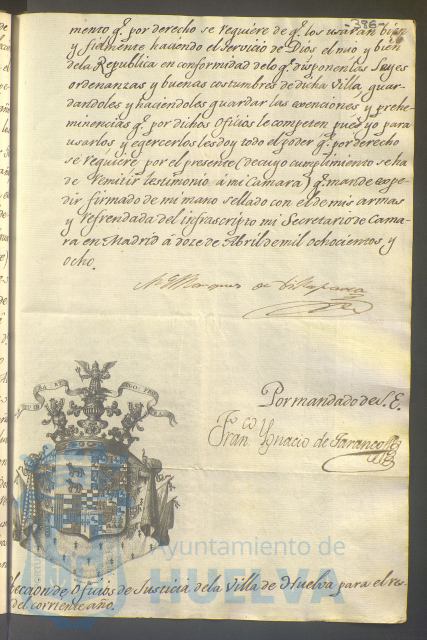 386
mento q.e por derecho se requiere de q.e los usarán bien
y fielmente haciendo el Servicio de Dios el mio y bien
dela Republica en conformidad delo q.e disponen las Leyes
ordenanzas y buenas costumbres de dicha Villa, guar-
dandoles y haciendoles guardar las exenciones y prehe-
minencias q.e por dichos Oficios le competen pues yo para
usarlos y egercerlos les doy todo el poder q.e por derecho
se requiere por el presente (de cuyo cumplimiento se ha
de remitir testimonio á mi Camara) q.e mande expe-
dir firmado de mi mano sellado con el de mis armas
y refrendada del infrascripto mi Secretario de Cama-
ra en Madrid á doze de Abril de mil ochocientos y
ocho.
El Marques de Villafranca
Por mandado de S. E.
Fran.co Ygnacio de Taranco
Ayuntamiento de
HUELVA
eccion de Oficios de Justicia dela Villa de Huelva para el res-
del corriente año.